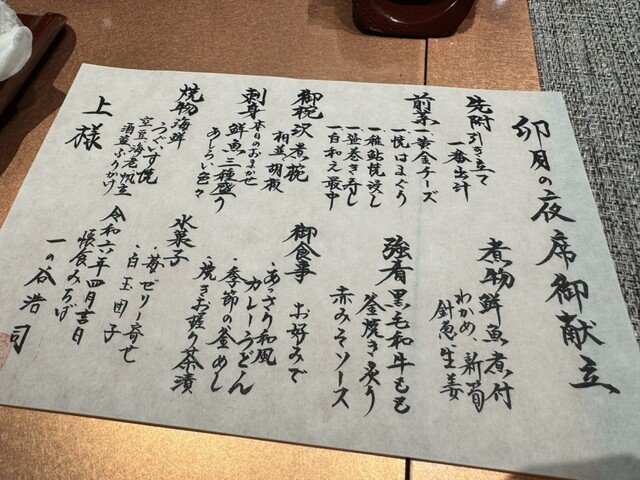 卯月の夜席御献立
先附 引き立て
一番出汁
前菜 一黄金チーズ
一悦はまぐり
一稚鮎焼浸し
一笹巻き寿し
一白和え最中
御椀 沢煮椀
相並胡椒
刺身 本日のおまかせ
鮮魚三種盛り
あしらい色々
焼物 海鮮
うぐいす焼
空豆 海老 帆立
酒盗ふりかけ
上様
煮物 鮮魚煮付
わかめ、新筍
針魚生姜
強肴 黒毛和牛もも
釜焼き炙り
赤みそソース
御食事 お好みで
・あっさり和風
カレーうどん
・季節の釜めし
・焼きお握り茶漬
水菓子
・苺ゼリー寄せ
・白玉団子
令和六年四月吉日
懐食みちば
一の谷浩司